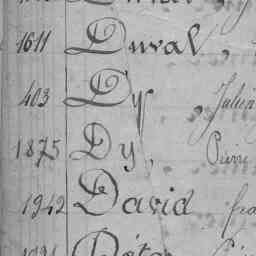 1611 Duval,
403 Dy, Julien
1875 Dy, Pierre
1942 David fra